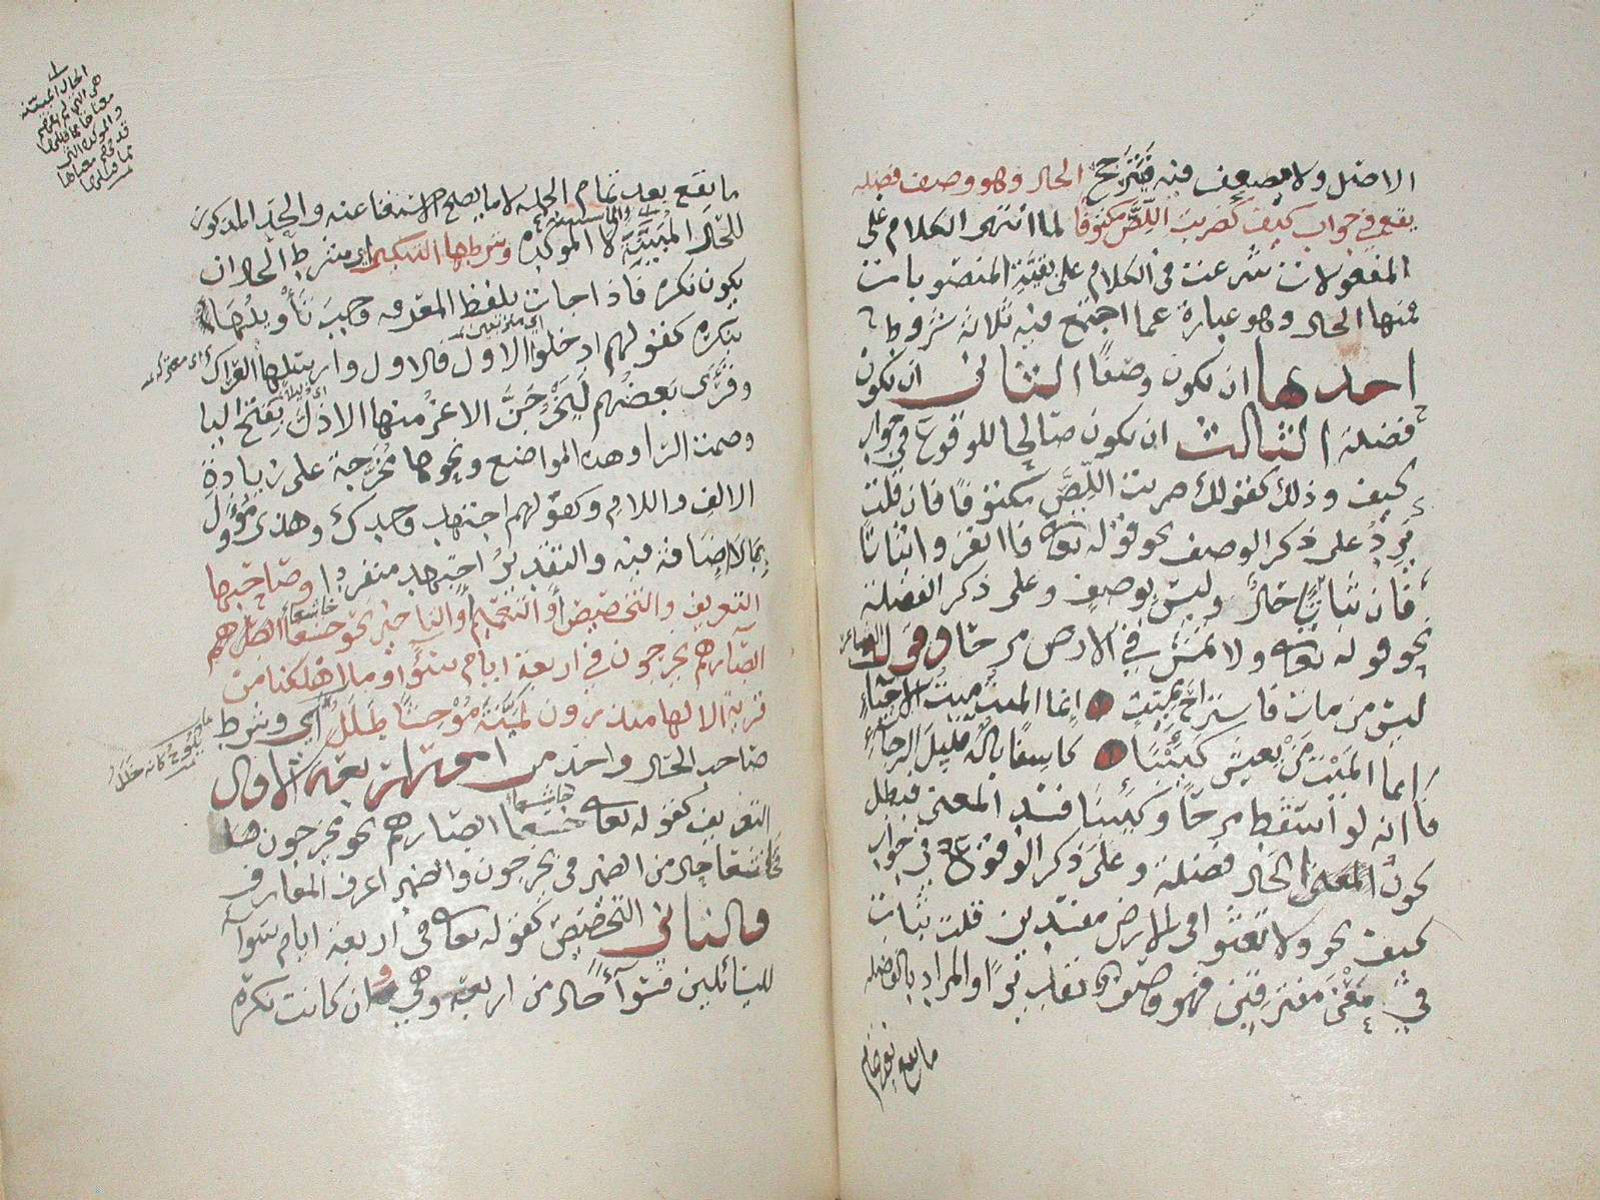 الاصل ولا يضعف فيه فيترجح الحال وهو وصف فضله
يقع في جواب كيف كضربت اللص مكتوفا لما انتهى الكلام على
المفعولات شرعت في الكلام على بقية المنصوبات
فمنها الحال وهو عبارة عما اجتمع فيه ثلاثة شروط
احدها ان يكون وصفا الثاني ان يكون
فضلة الثالث ان يكون صالحا للوقوع في جواب
كيف وذلك كقولك ضربت اللص مكتوفا فان قلت
يرد على ذكر الوصف نحو قوله تعالى فانفروا ثباتا
فان ثباتا حال وليس بوصف وعلى ذكر الفضلة
نحو قوله تعالى ولا تمش في الارض مرحا وقول الشاعر
ليس من مات فاستراح بميت انما الميت ميت الاحياء
انما الميت من يعيش كئيبا كاسفا باله قليل الرجاء
فانه لو اسقط مرحا وكئيبا فسد المعنى فبطل
كون الحال فضلة وعلى ذكر الوقوع في جواب
كيف نحو ولا تعثوا في الارض مفسدين قلت ثبات
في معنى متفرقين فهو وصف تقديرا والمراد بالفضله
ما يقع بعد تمام
ما يقع بعد تمام الجملة لا ما يصلح الاستغناء عنه والحد المذكور
للحال المبينة لا الموكدة وشرطها التنكير اي شرط الحال ان
يكون نكره فاذا جات بلفظ المعرفه وجب تأويلها
بنكره كقولهم ادخلوا الاول فالاول وارسلها العراك
وقرئ بعضهم ليخرجن الاعز منها الاذل بفتح اليا
وضمت الرا وهذه المواضع ونحوها مخرجة على زيادة
الالف واللام وكقولهم اجتهد وحدك وهذا مؤول
بما لا اضافة فيه والتقدير اجتهد منفردا وصاحبها
التعريف والتخصيص او التعميم او التاخير نحو خشعا ابصارهم
ابصارهم يخرجون في اربعة ايام سوا وما اهلكنا من
قرية الا لها منذرون لمية موحشا طلل اي وشرط
صاحب الحال واحد من امور اربعة الاول
التعريف كقوله تعالى خشعا ابصارهم نحو يخرجون
فخاشعا حال من الضمير في يخرجون والضمير اعرف المعارف
والثاني التخصيص كقوله تعالى في اربعة ايام سوآ
للسائلين فسوآ حال من اربعة وهي وان كانت نكرة
الحال المبينه
هي التي لم يفهم
معناها مما قبلها
والموكده التي
قد فهم معناها
مما قبلها
اي مترتبين
اي معتركه
اي ذليلا
خاشعا
خاشعا
يلوح كانه خلل